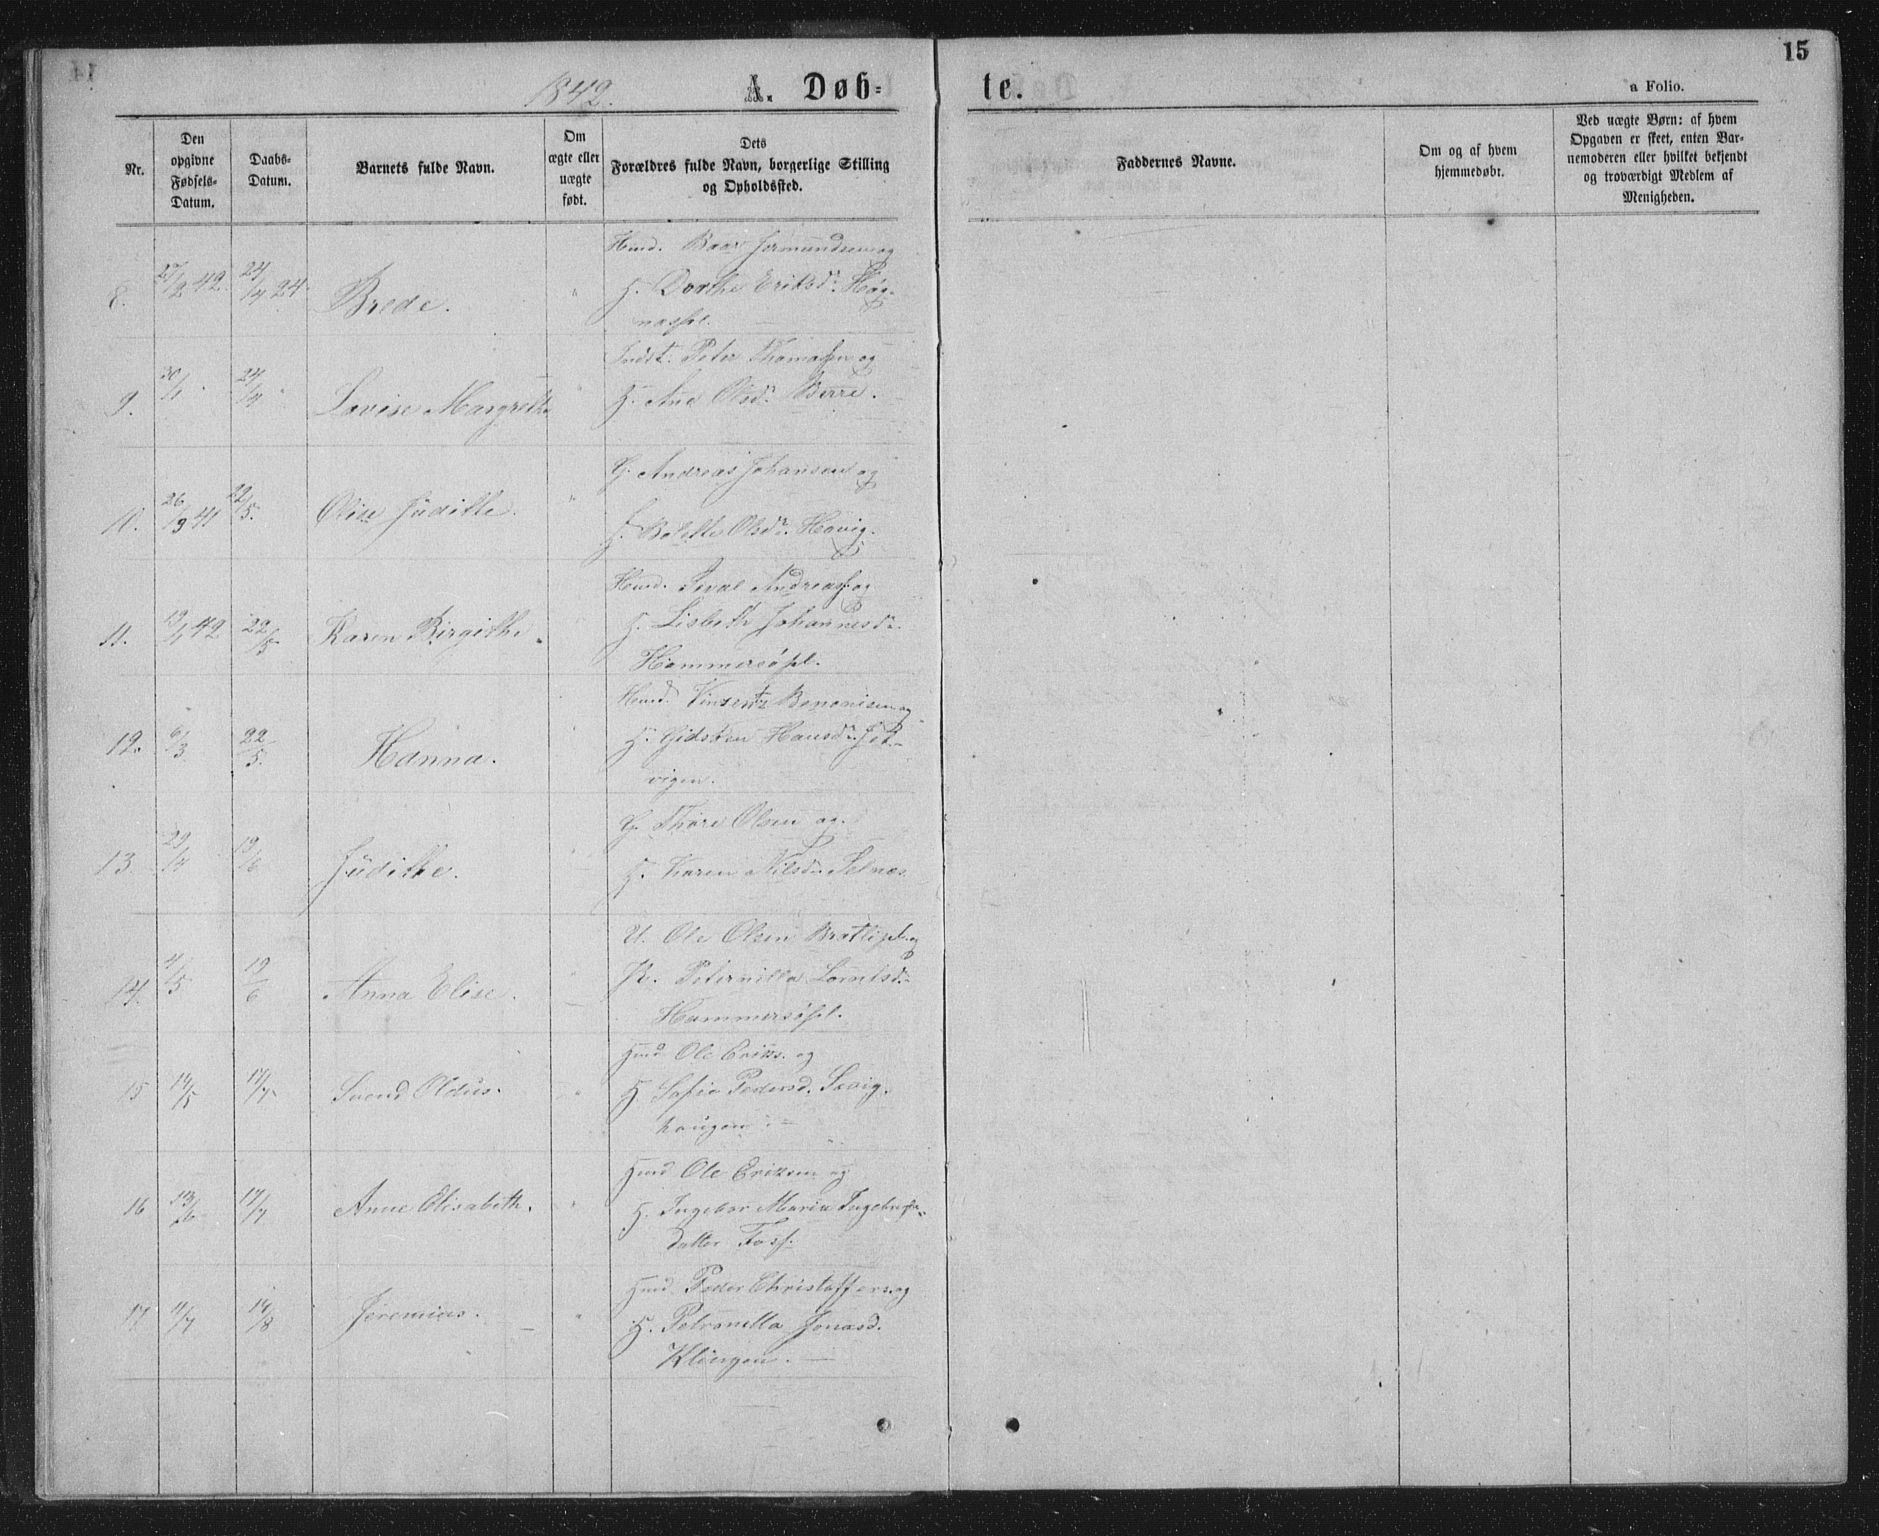 15
1842.
A. Døb-
te.
a Folio.
Nr.
Den
opgivne
Fødsels-
Datum.
Daabs-
Datum.
Barnets fulde Navn.
Om
ægte eller
uægte
født.
Dets
Forældres fulde Navn, borgerlige Stilling
og Opholdssted.
Faddernes Navne.
Om og af hvem
hjemmedøbt.
Ved uægte Børn: af hvem
Opgaven er skeet, enten Bar-
nemoderen eller hvilket bekjendt
og troværdigt Medlem af
Menigheden.
8. 27/2 42. 24/4 24 Brede. "
Huusd. Baar Jermundsen og
H. Dorthe Eriksd.
naspl.
9. 30/1 " 24/4 " Lovise Margrethe "
Indst. Peter Thomassen og
H. Ane Olsd. Berre.
10. 26/9 41 22/5. Olise Judithe. "
G. Andreas Johansen og
H. Bolette Olsd. Havig.
11. 19/1 42 22/5 Karen Birgithe. "
Huusd. Andreass. og
H. Lisbeth Johannesd.
Hammersøpl.
12. 6/3 22/5. Hanna. "
Huusd. Vinsentz Benonisen og
H. Gidsken Hansd.
vigen.
13. 29/4 19/6 Judithe. "
G. Thore Olsen og
H. Karen Nilsd. Selnæs
14. 4/5 19/6 Anna Elise. "
U. Ole Olsen Bratlipl. og
P. Peternilla Lorntsd.
Hammersøpl.
15 14/5 17/7 Svend Oldus. "
Huusd. Ole Eriks. og
H. Sofie Pedersd. Savig-
haugen.
16 13/6 17/7 Anne Elisabeth. "
Huusd. Ole Eriksen og
H. Ingebor Maria Ingebrigts-
datter Foss.
17. 11/7 14/8 Jeremias. "
Huusd. Peder Christoffers. og
H. Petronilla Jonasd.
Klingen.